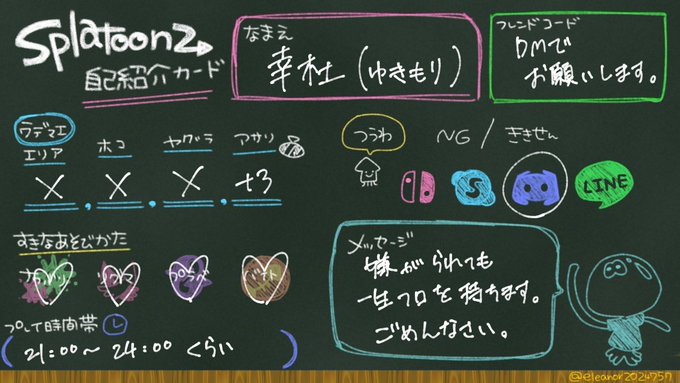 Splatoon2
自己紹介カード
なまえ
幸杜(ゆきもり)
フレンドコード
DMで
お願いします。
ウデマエ
エリア ホコ ヤグラ アサリ
X, X, X, +3
つうわ
NG / ききせん
S
LINE
すきなあそびかた
ナワバリ リグマ プラベ バイト
プレイ時間帯
(21:00〜24:00 くらい)
メッセージ
嫌がられても
一生フロを持ちます。
ごめんなさい。
@eleanor2024757